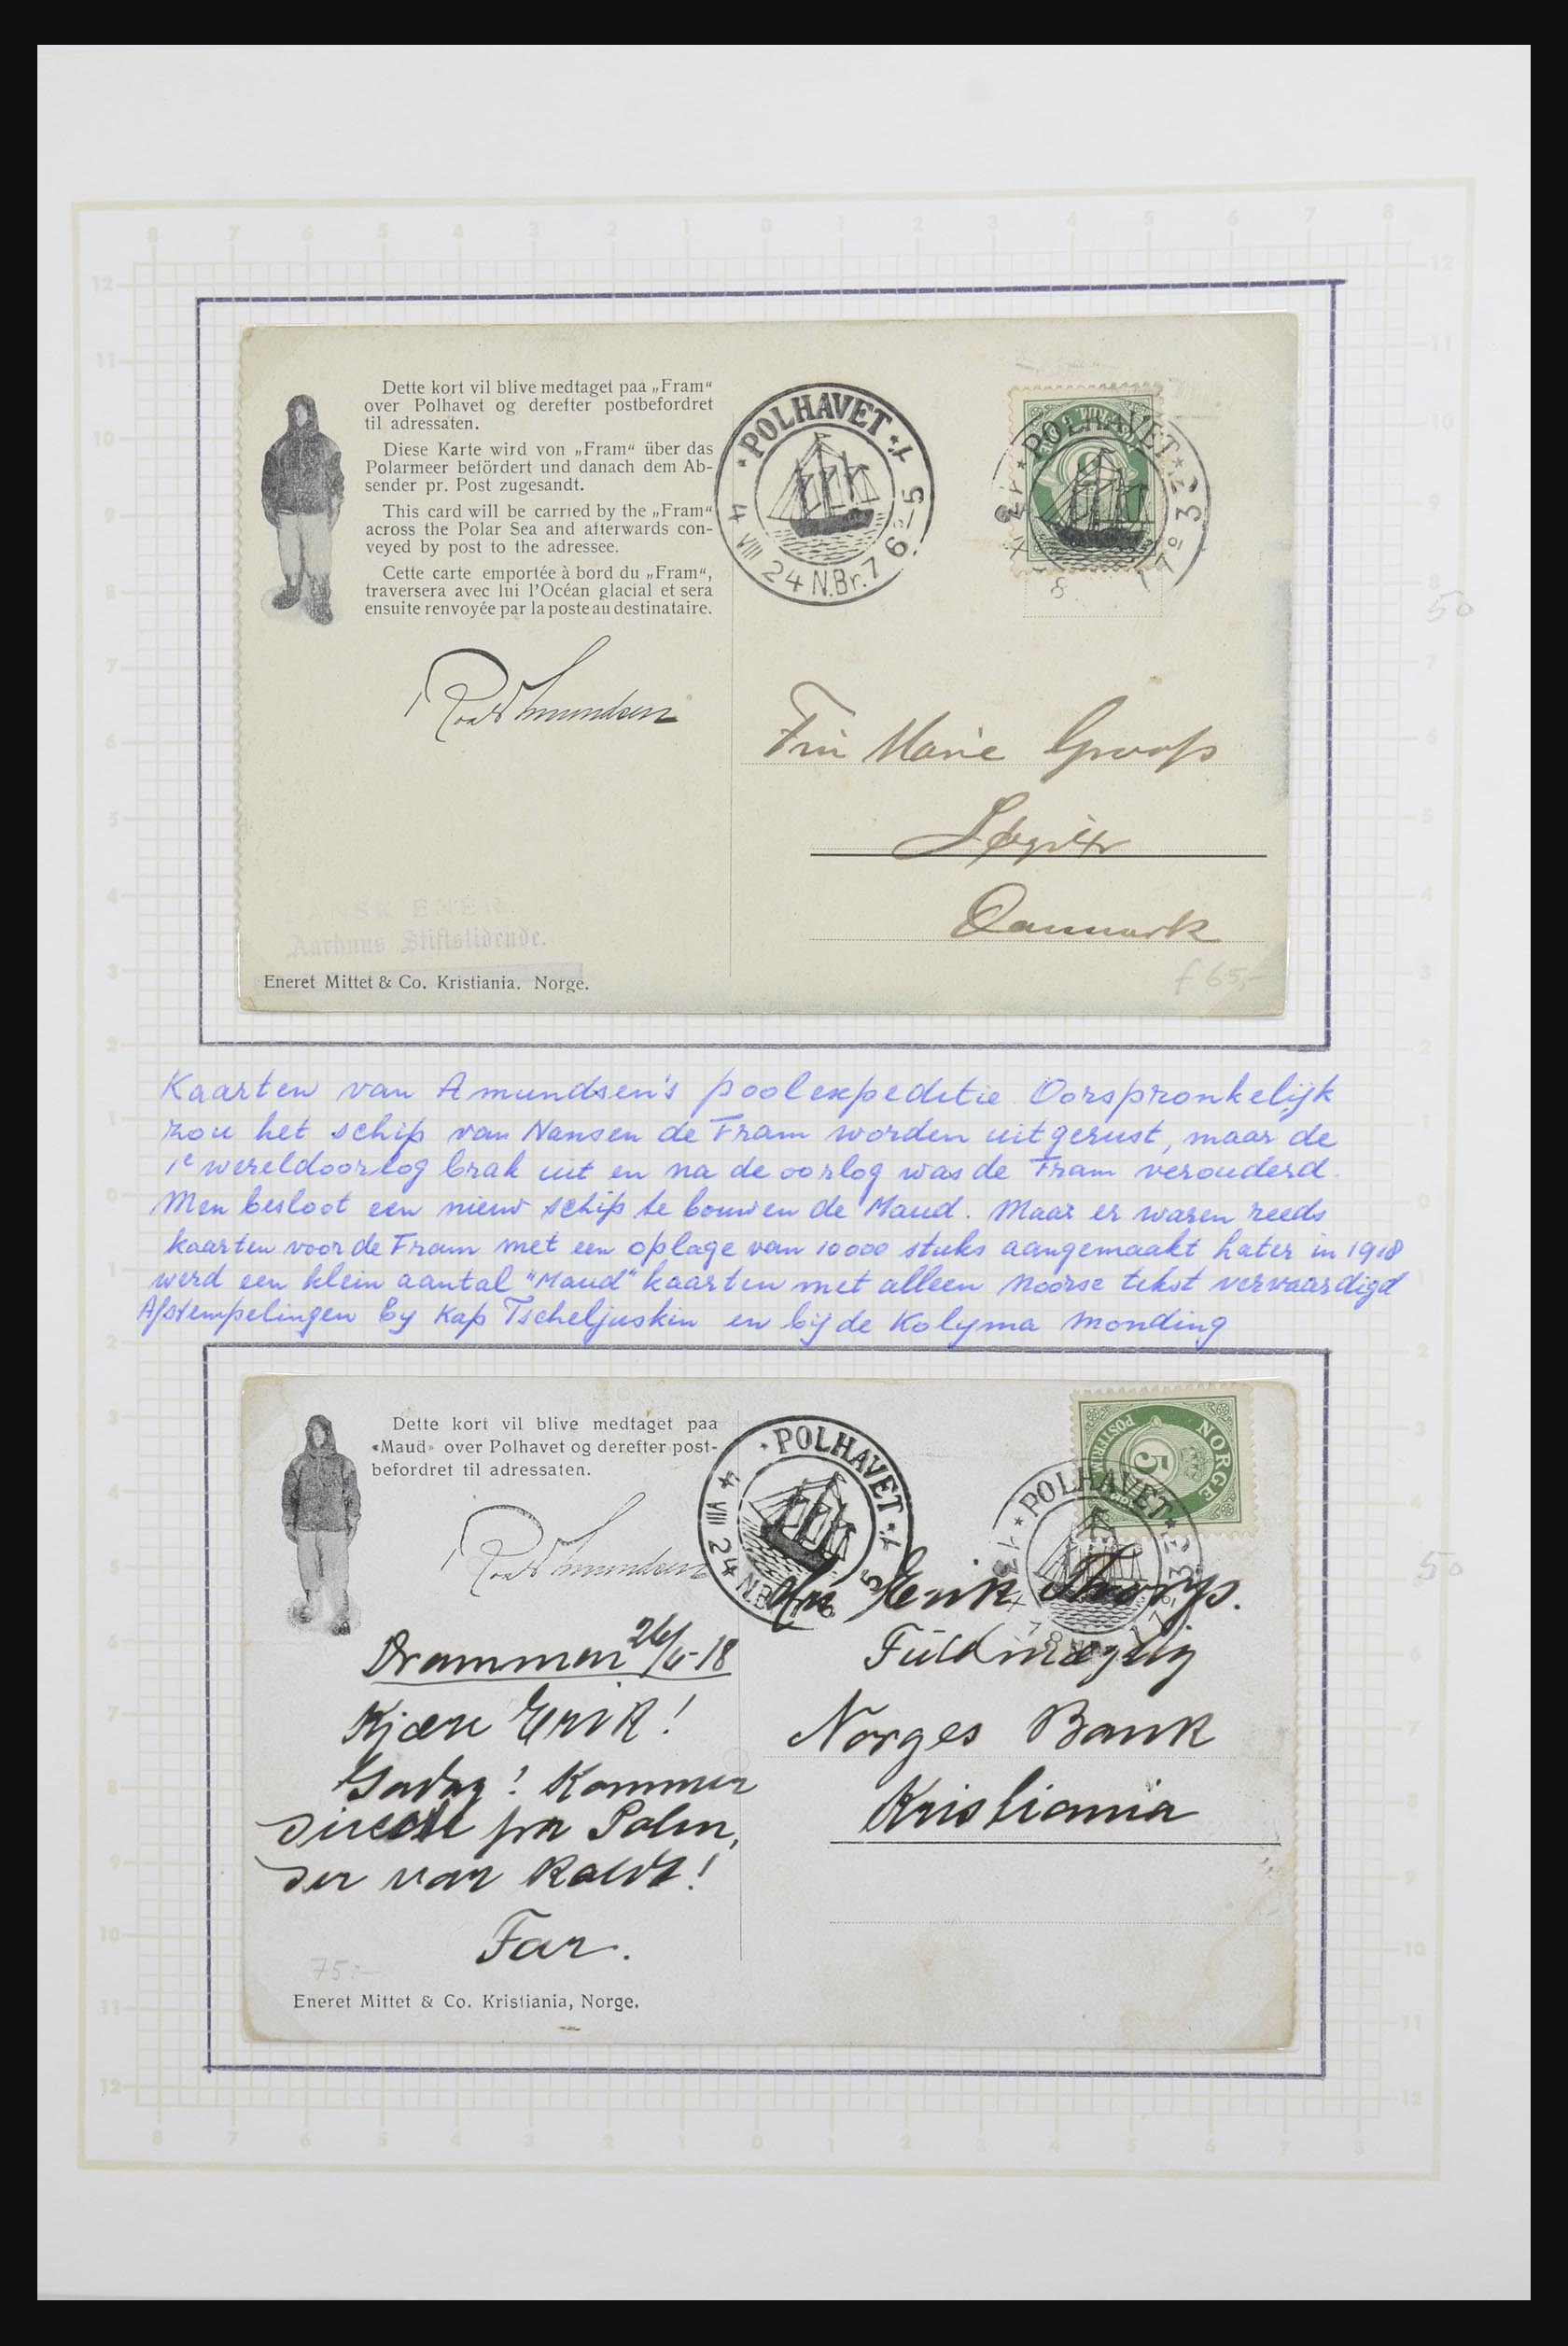 Dette kort vil blive medtaget paa „Fram“
over Polhavet og derefter postbefordret
til adressaten.
Diese Karte wird von „Fram“ über das
Polarmeer befördert und danach dem Ab-
sender pr. Post zugesandt.
This card will be carried by the „Fram“
across the Polar Sea and afterwards con-
veyed by post to the adressee.
Cette carte emportée à bord du „Fram“,
traversera avec lui l'Océan glacial et sera
ensuite renvoyée par la poste au destinataire.
POLHAVET
4 VIII 24 N.Br. 76°-5
POLHAVET
Roald Amundsen
Marie
Danmark
f 65,-
Aarhuus Stiftstidende.
Eneret Mittet & Co. Kristiania. Norge.
50
Kaarten van Amundsen's poolexpeditie Oorspronkelijk
zou het schip van Nansen de Fram worden uitgerust, maar de
1e wereldoorlog brak uit en na de oorlog was de Fram verouderd.
Men besloot een nieuw schip te bouwen de Maud. Maar er waren reeds
kaarten voor de Fram met een oplage van 10000 stuks aangemaakt Later in 1918
werd een klein aantal "Maud" kaarten met alleen Noorse tekst vervaardigd
Afstempelingen by Kap Tscheljuskin en bij de Kolyma Monding
Dette kort vil blive medtaget paa
«Maud» over Polhavet og derefter post-
befordret til adressaten.
Roald Amundsen
POLHAVET
4 VIII 24
NORGE
POSTFRIM
5
POLHAVET
Drammen 26/6-18
Kjære Erik!
Goddag! Kommer
direkte fra Polen,
der var koldt!
Far.
Hr. Erik
Fuldmægtig
Norges Bank
Kristiania
75:-
Eneret Mittet & Co. Kristiania, Norge.
50